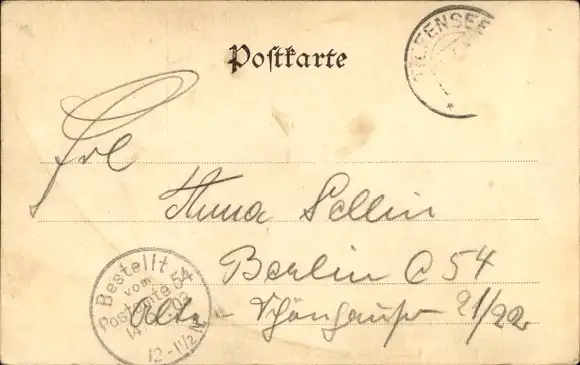 Postkarte
TIEFENSEE
Frl
Anna Sellin
Berlin C 54
Alte-Schönhauser 21/22
Bestellt
vom
Postamte 54
14
12-1 1/2 N